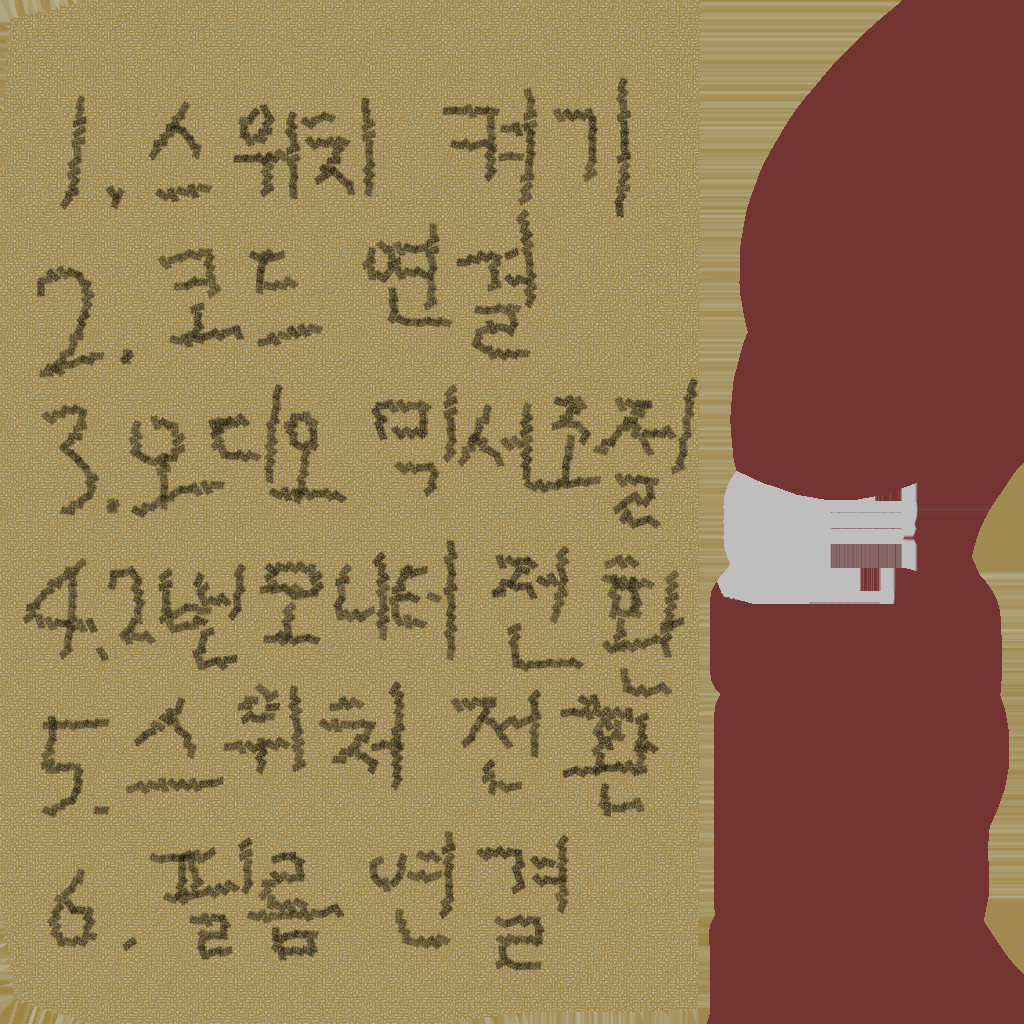 1. 스위치 켜기
2. 코드 연결
3. 오디오 믹서 조절
4. 2번 모니터 전환
5. 스위처 전환
6. 필름 연결